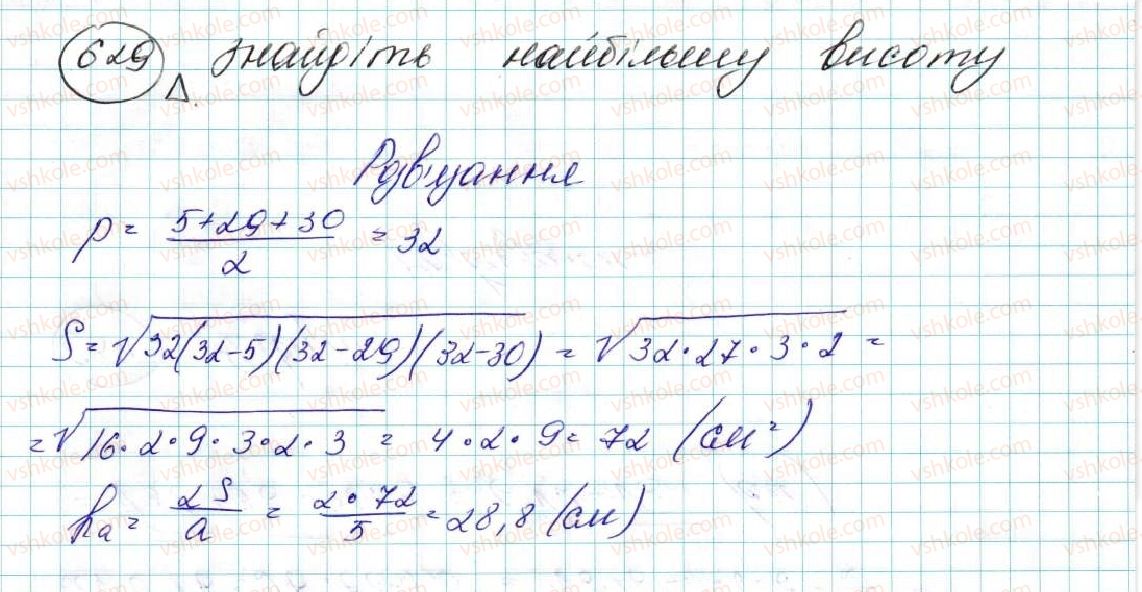 629 Δ знайдіть найбільшу висоту
Розв'язання
p = (5+29+30)/2 = 32
S = √(32(32-5)(32-29)(32-30)) = √(32·27·3·2) =
= √(16·2·9·3·2·3) = 4·2·9 = 72 (см²)
hₐ = 2S/a = 2·72/5 = 28,8 (см)